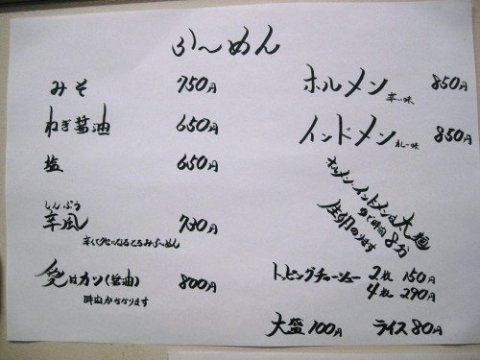 らーめん
みそ 750円
ねぎ醤油 650円
塩 650円
しんぷう
辛風 730円
愛はカツ(醤油) 800円
時間かかります
ホルメン 辛い味 850円
インドメン カレー味 850円
ホルメン インドメンは太麺
ゆで時間8分
トッピングチャーシュー 2枚 150円
4枚 290円
大盛 100円 ライス 80円